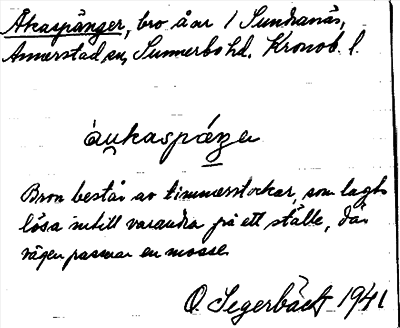 Åkaspänger, bro å ar / Sundranäs,
Annerstad sn, Sunnerbo hd. Kronob. l.
åukaspáŋeʀ
Bron består av timmerstockar, som lagts
lösa intill varandra på ett ställe, där
vägen passerar en mosse.
O. Segerbäck 1941